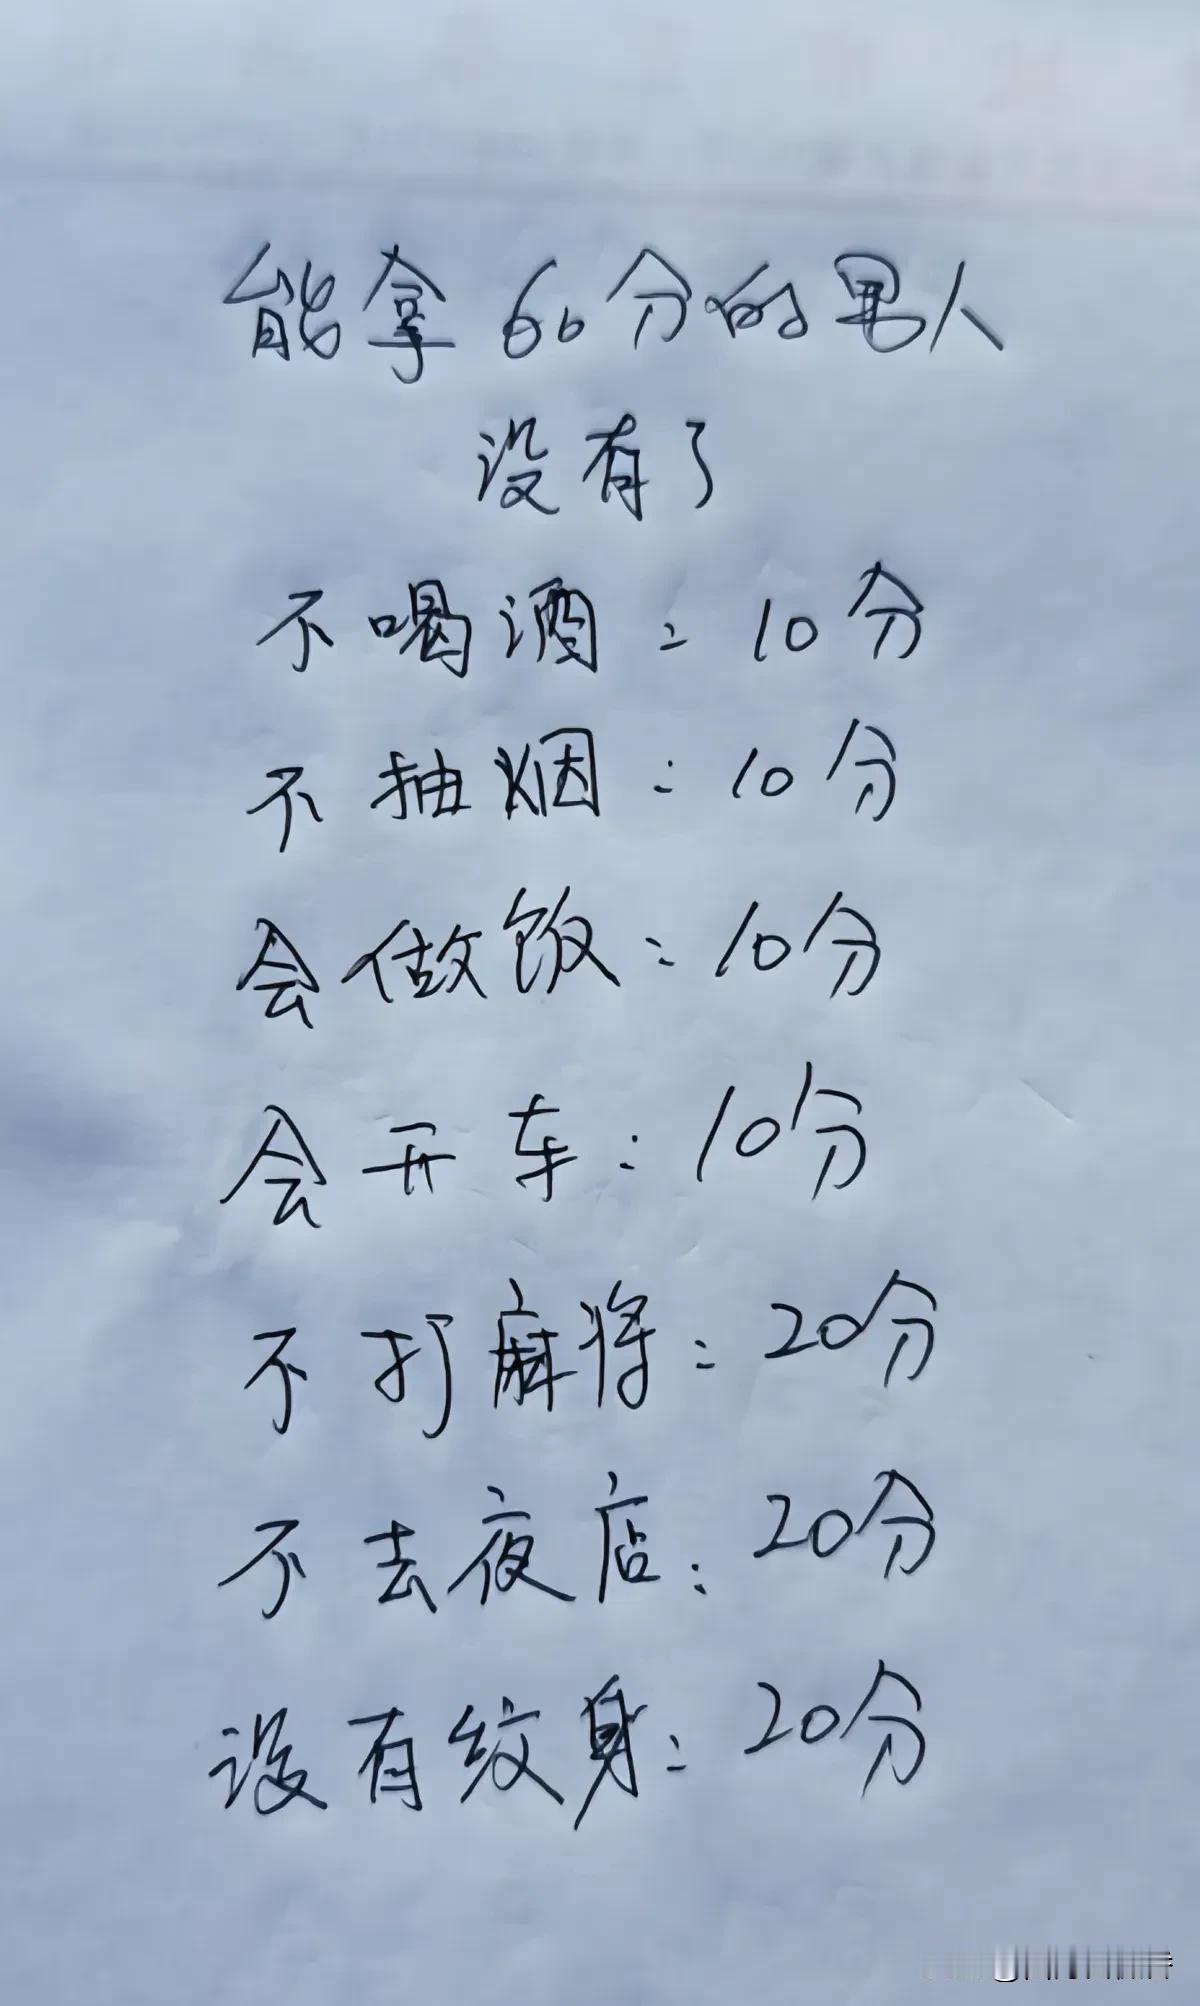 能拿60分的男人
没有了
不喝酒：10分
不抽烟：10分
会做饭：10分
会开车：10分
不打麻将：20分
不去夜店：20分
没有纹身：20分